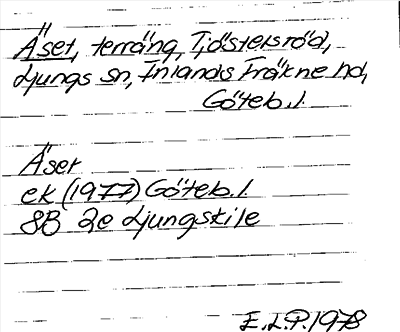 Åset, terräng, Tjöstelsröd,
Ljungs sn, Inlands Fräkne hd,
Göteb. l.
Åset
ek (1977) Göteb. l.
8B 2e Ljungskile
E.L.P. 1978